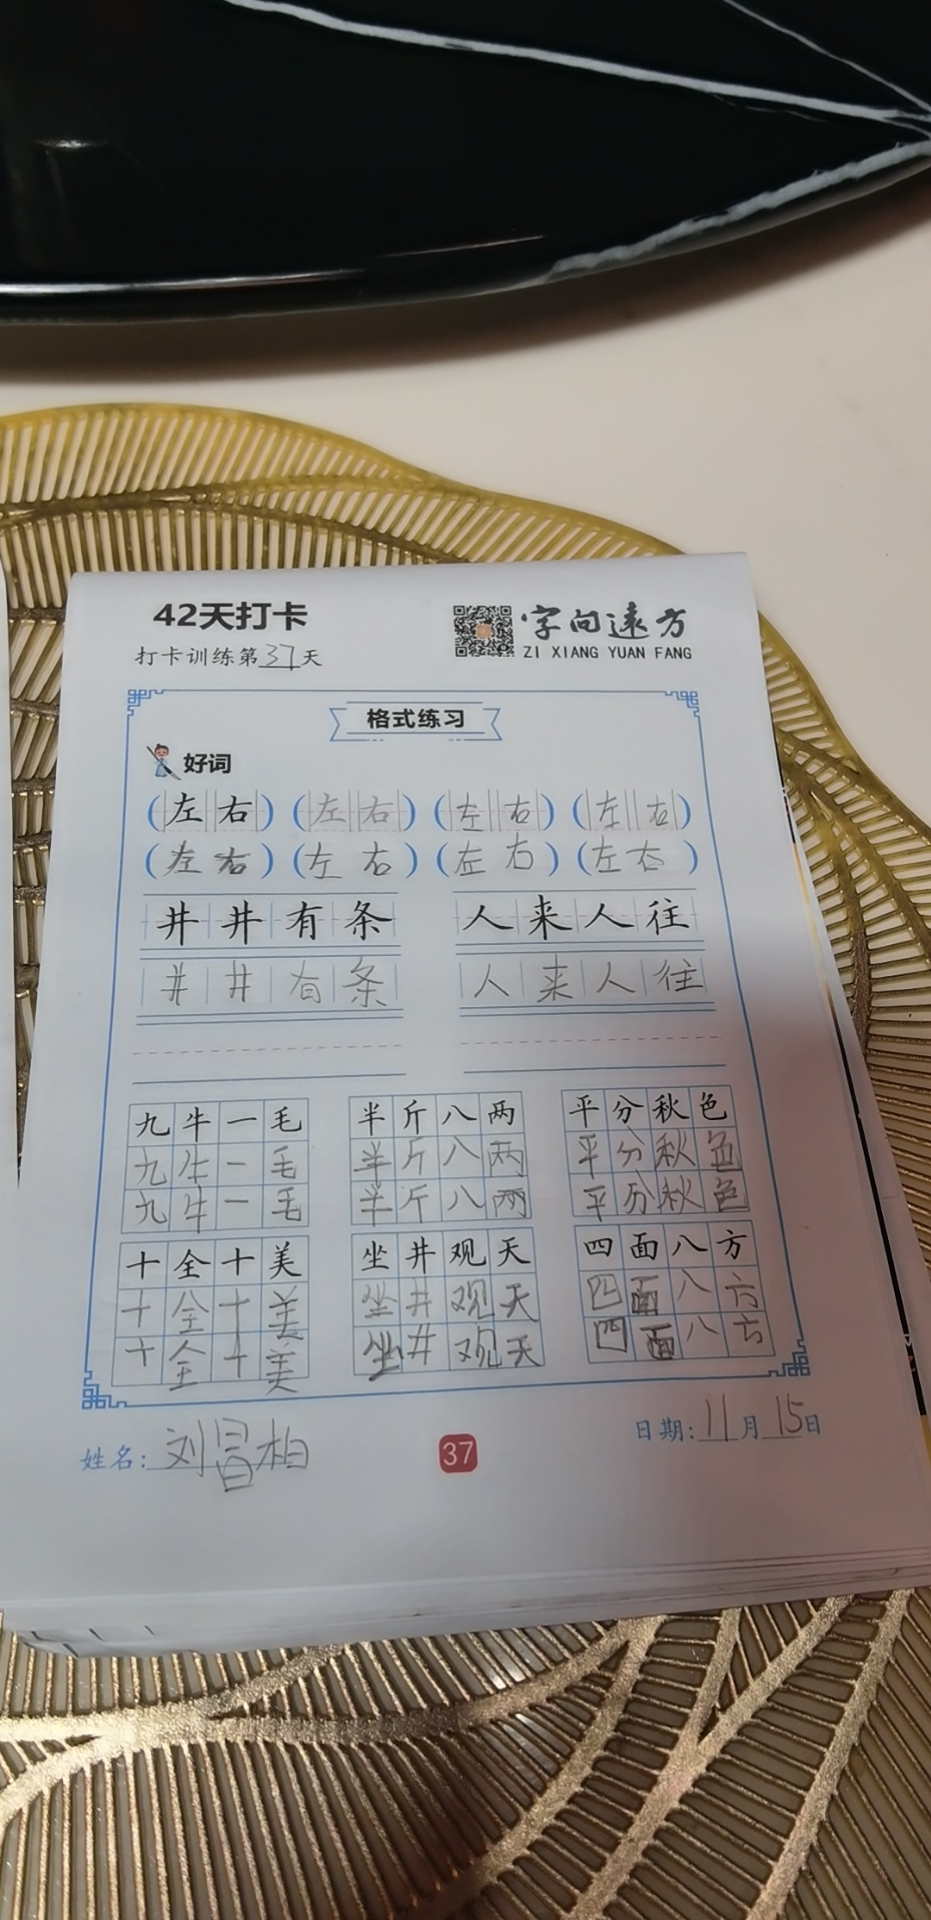 42天打卡
字向远方
打卡训练第37天
ZI XIANG YUAN FANG
格式练习
好词
(左右) (左右) (左右) (左右)
(左右) (左右) (左右) (左右)
井井有条 人来人往
井井有条 人来人往
九牛一毛 半斤八两 平分秋色
九牛一毛 半斤八两 平分秋色
九牛一毛 半斤八两 平分秋色
十全十美 坐井观天 四面八方
十全十美 坐井观天 四面八方
十全十美 坐井观天 四面八方
姓名:刘冒相 37 日期:11月15日